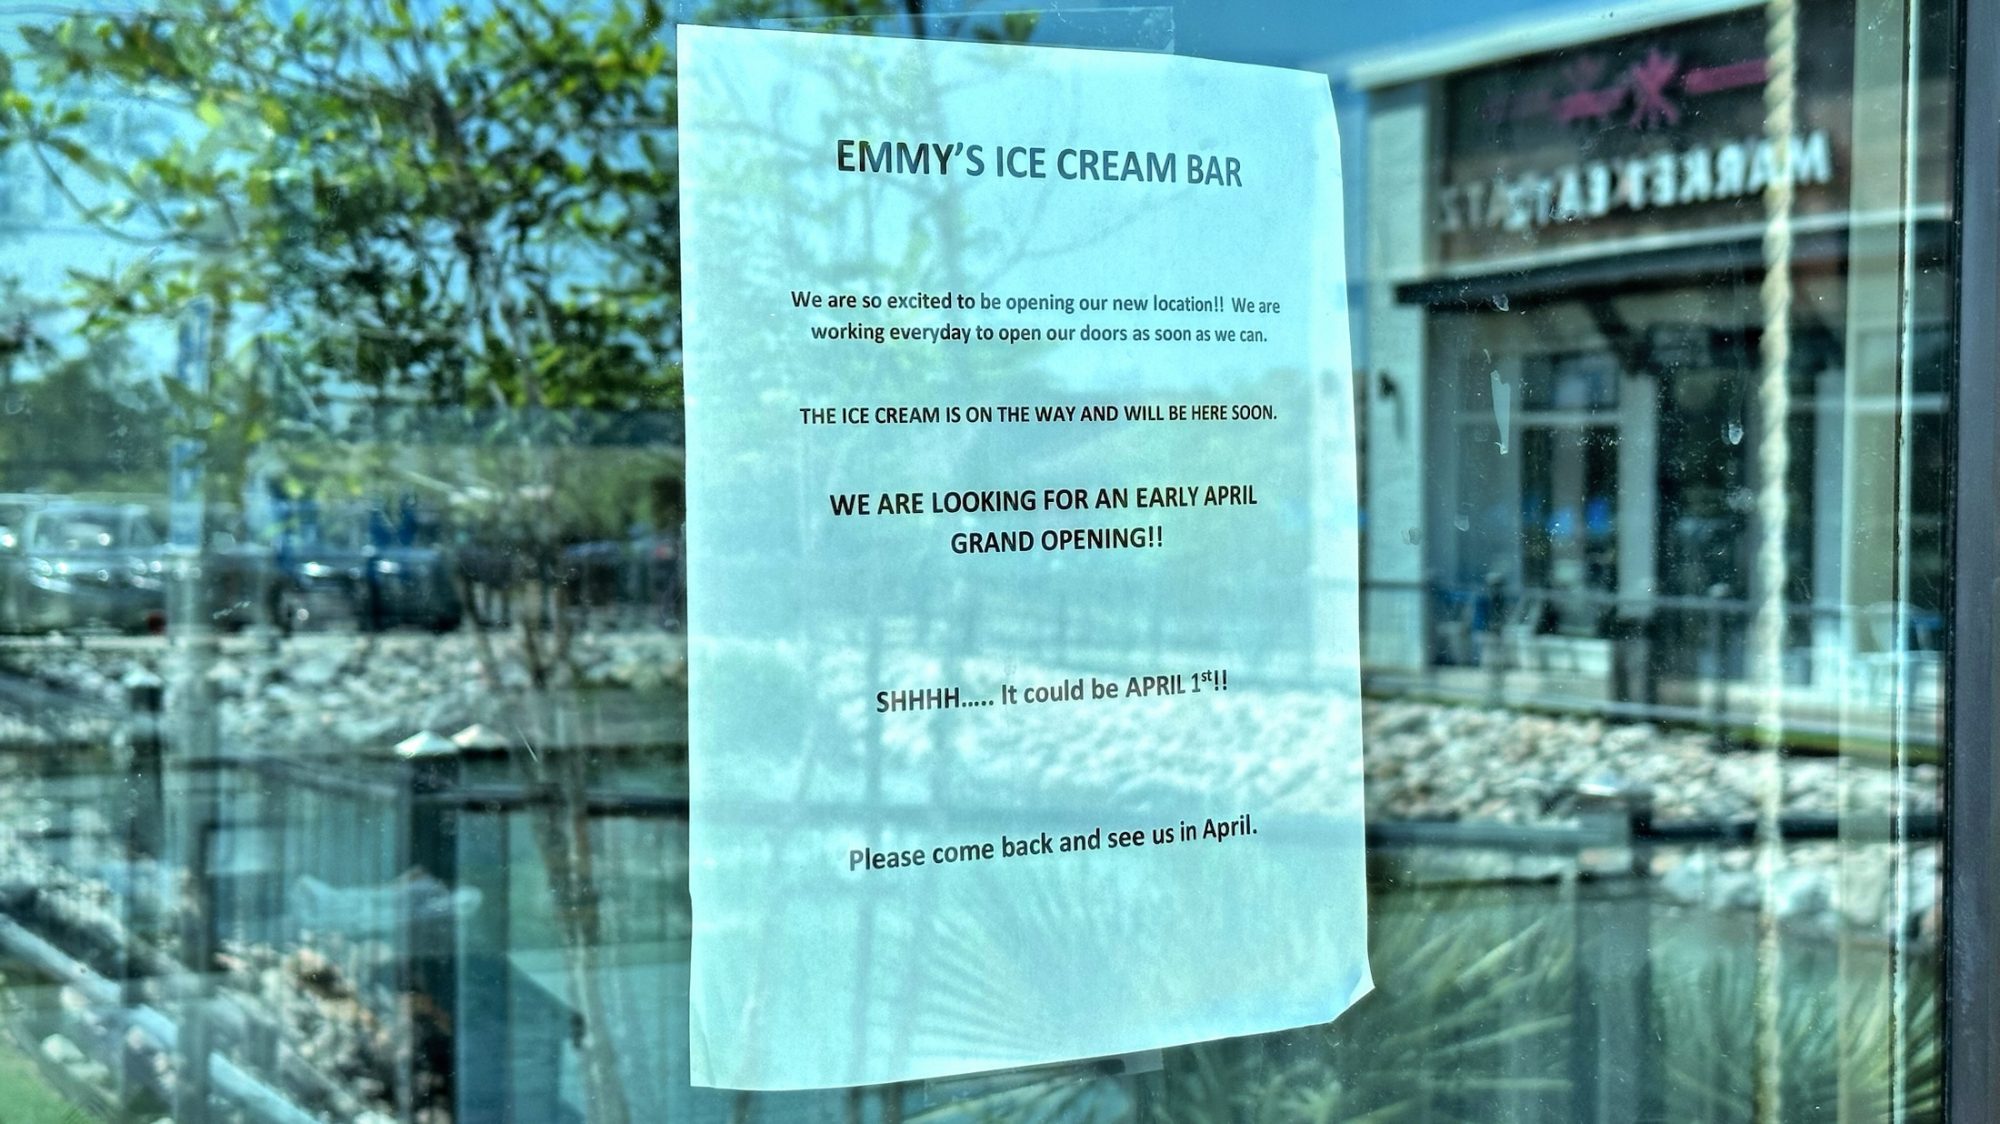 EMMY'S ICE CREAM BAR
We are so excited to be opening our new location!! We are
working everyday to open our doors as soon as we can.
THE ICE CREAM IS ON THE WAY AND WILL BE HERE SOON.
WE ARE LOOKING FOR AN EARLY APRIL
GRAND OPENING!!
SHHHH..... It could be APRIL 1st!!
Please come back and see us in April.
MARKET